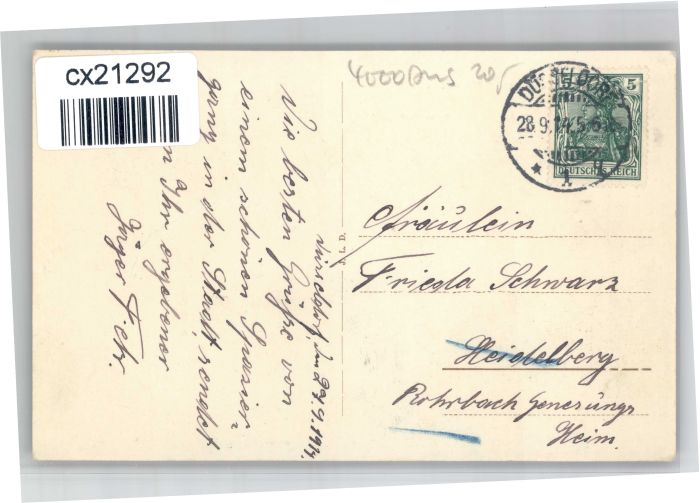 cx21292
4000Dus 20,-
DÜSSELDORF
28.9.14.5-6
* 1 g
5
DEUTSCHES REICH
Düsseldorf, den 27.9.1914.
Die besten Grüße von
einem schönen Spazier
gang in der Stadt, sendet
Ihr ergebener
Jäger Fetr.
J. L. D.
Fräulein
Frieda Schwarz
Heidelberg
Rohrbach Genesungs
Heim.